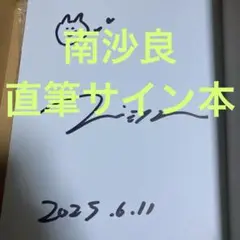 南沙良
直筆サイン本
2025.6.11